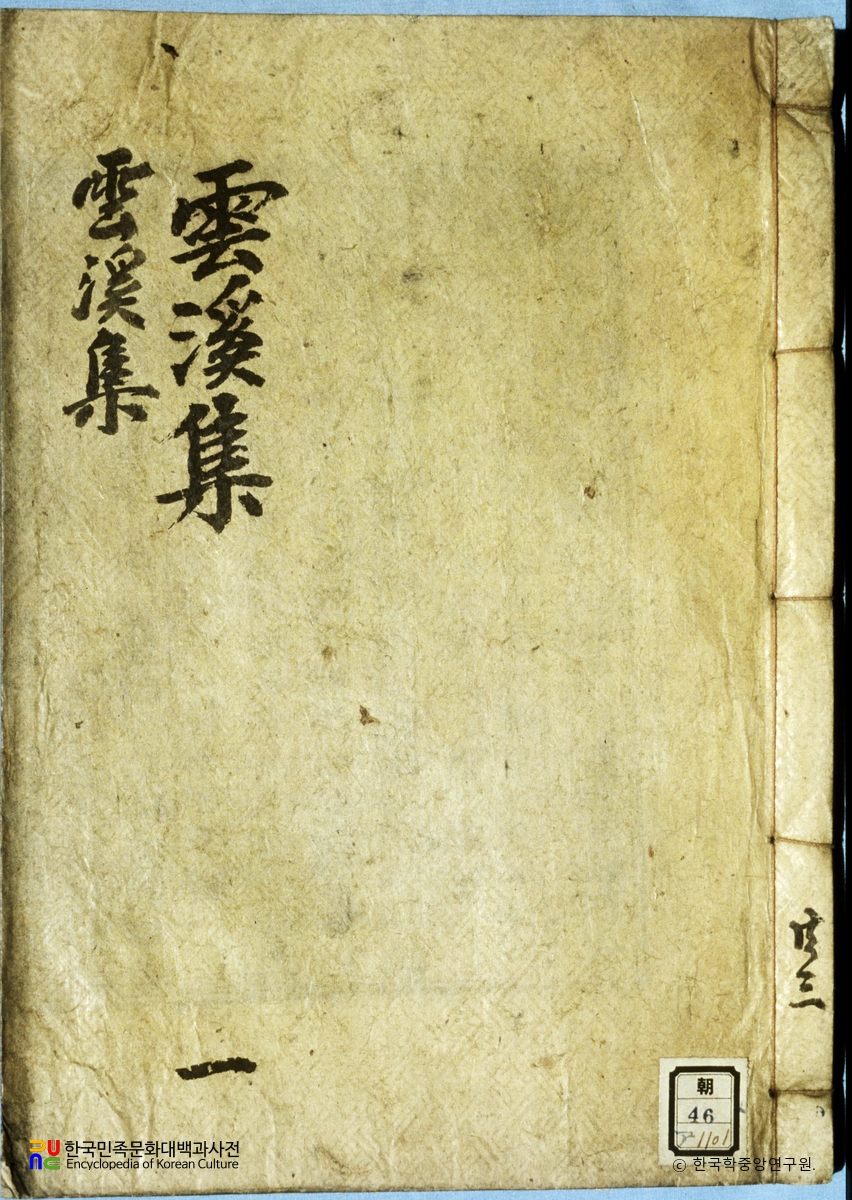 雲溪集
雲溪集
一
共三
朝
46
1101
한국민족문화대백과사전
Encyclopedia of Korean Culture
© 한국학중앙연구원.